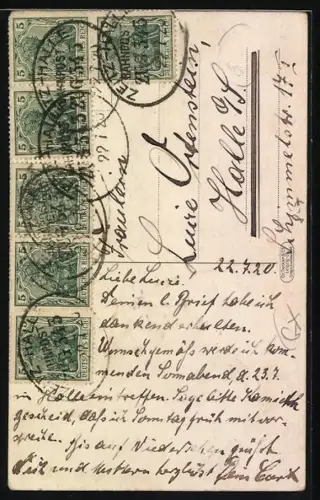 Fräulein
Luise Ortenstein,
Halle a/S
Schimmelstr. 17 I
22.7.20.
Liebe Luise.
Deinen l. Brief habe ich
dankend erhalten.
Wunschgemäss werde ich kom-
menden Sonnabend, d. 23.7.
in Halle eintreffen. Sage bitte
Bescheid, dass ich Sonntag früh mit
reise. Bis auf Wiedersehen grüsst
Dich und herzlichst Dein
5
5
5
5
5
ZEITZ-HALLE
BAHNPOST